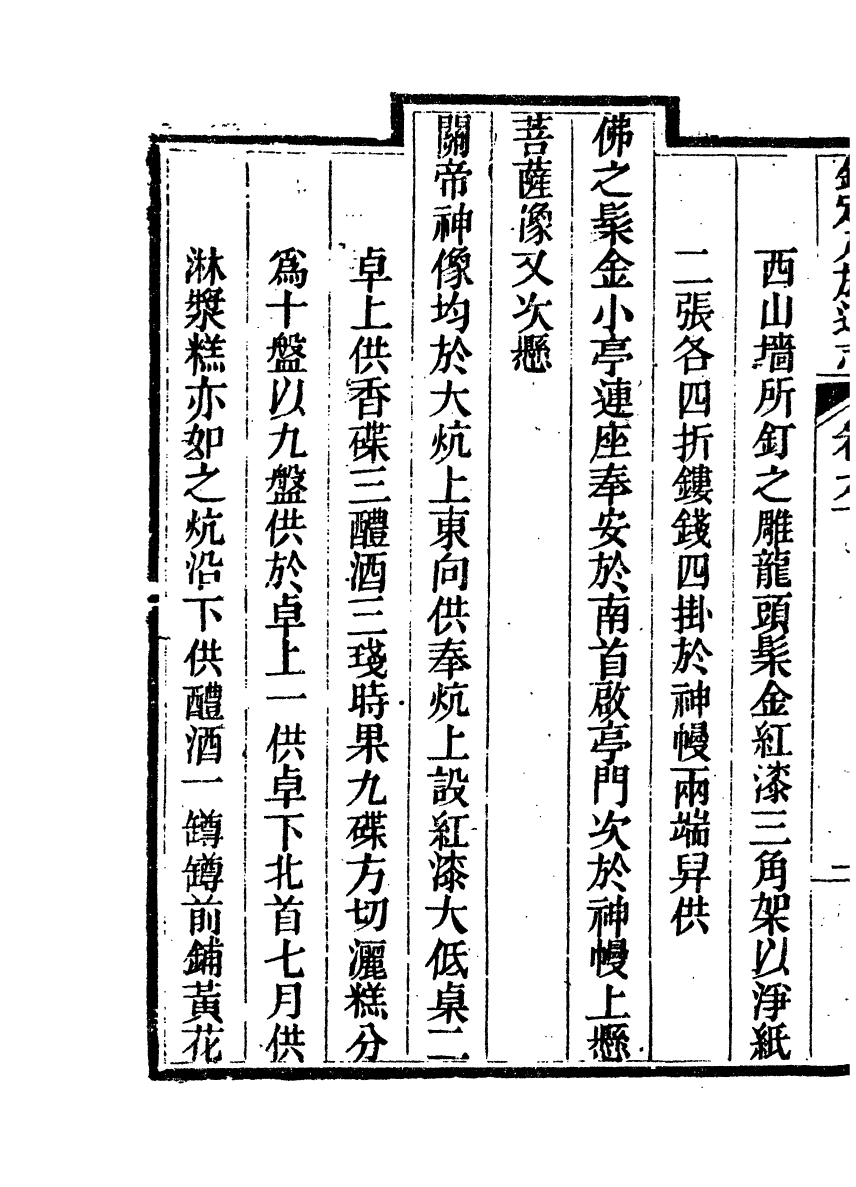 西山墻所釘之雕龍頭髹金紅漆三角架以淨紙
二張各四折鏤錢四掛於神幔兩端舁供
佛之髹金小亭連座奉安於南首啟亭門次於神幔上懸
菩薩像又次懸
關帝神像均於大炕上東向供奉炕上設紅漆大低桌二
卓上供香碟三醴酒三琖時果九碟方切灑糕分
爲十盤以九盤供於卓上一供卓下北首七月供
淋漿糕亦如之炕沿下供醴酒一罇罇前鋪黃花